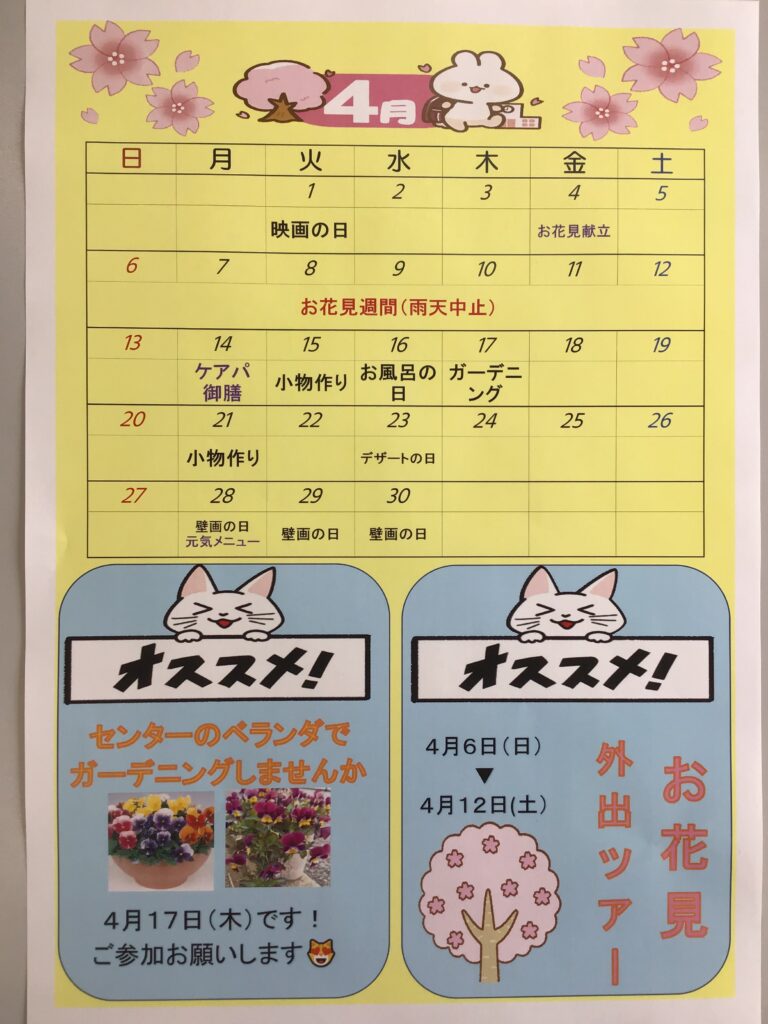 4月
日 月 火 水 木 金 土
1 2 3 4 5
映画の日 お花見献立
6 7 8 9 10 11 12
お花見週間(雨天中止)
13 14 15 16 17 18 19
ケアパ
御膳
小物作り
お風呂の
日
ガーデニ
ング
20 21 22 23 24 25 26
小物作り デザートの日
27 28 29 30
壁画の日
元気メニュー
壁画の日
壁画の日
オススメ!
センターのベランダで
ガーデニングしませんか
4月17日(木)です!
ご参加お願いします😻
オススメ!
4月6日(日)
▼
4月12日(土)
お花見
外出ツアー